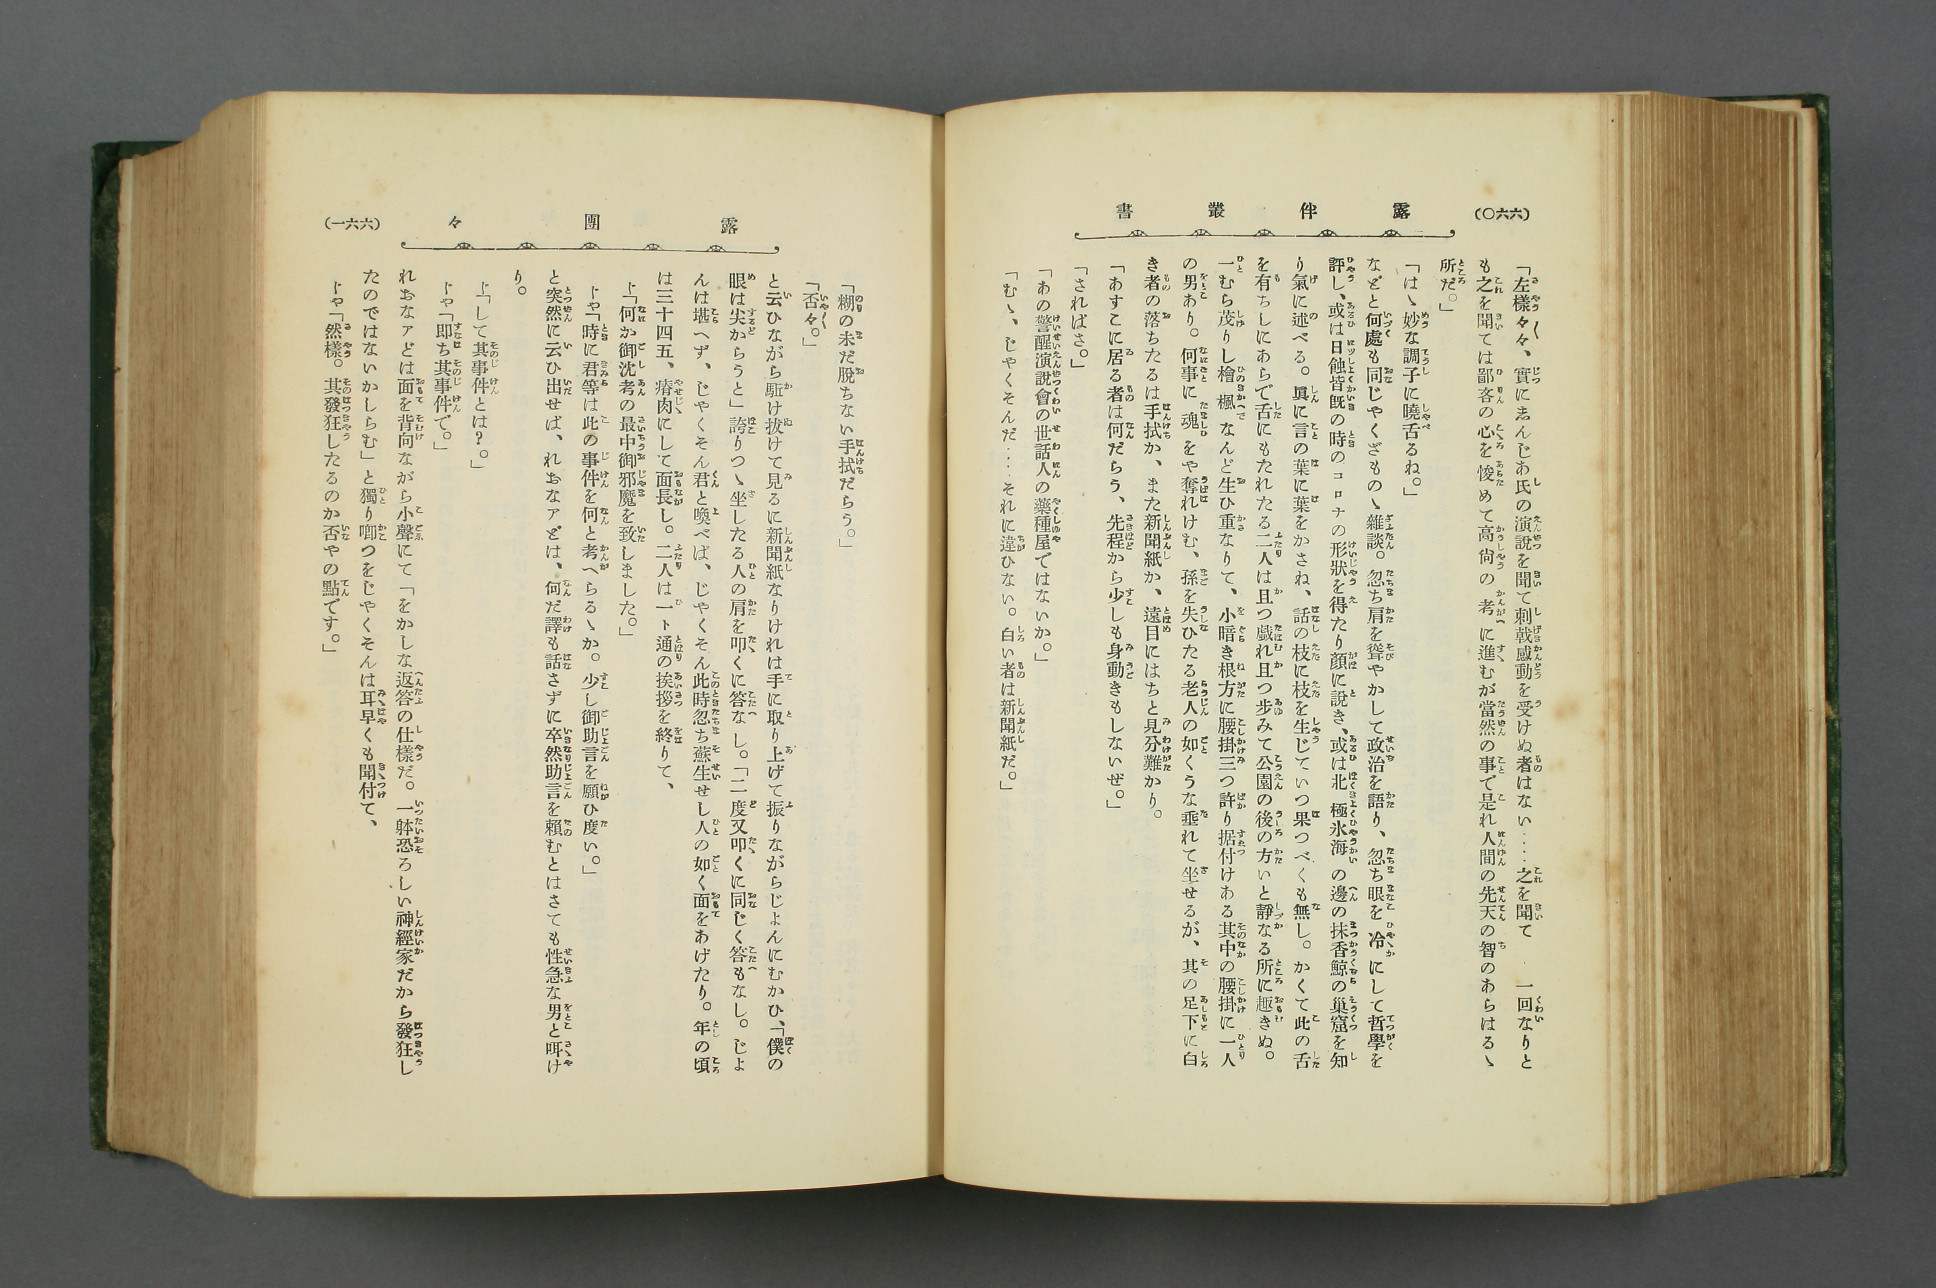 (六六〇)
露伴叢書
「左樣々々〱、實にゑんじあ氏の演説を聞て刺戟感動を受けぬ者はない‥‥之を聞て 一回なりと
も之を聞ては鄙吝の心を悛めて高尙の考に進むが當然の事で是れ人間の先天の智のあらはるゝ
所だ。」
「はゝ妙な調子に曉舌るね。」
などと何處も同じやくざものゝ雜談。忽ち肩を聳やかして政治を語り、忽ち眼を冷にして哲學を
評し、或は日蝕皆既の時のコロナの形狀を得たり顏に説き、或は北極氷海の邊の抹香鯨の巢窟を知
り氣に述べる。眞に言の葉に葉をかさね、話の枝に枝を生じていつ果つべくも無し。かくて此の舌
を有ちしにあらで舌にもたれたる二人は且つ戯れ且つ步みて公園の後の方いと靜なる所に趣きぬ。
一むら茂りし檜楓なんど生ひ重なりて、小暗き根方に腰掛三つ許り据付けある其中の腰掛に一人
の男あり。何事に魂をや奪れけむ、孫を失ひたる老人の如くうな垂れて坐せるが、其の足下に白
き者の落ちたるは手拭か、また新聞紙か、遠目にはちと見分難かり。
「あすこに居る者は何だらう、先程から少しも身動きもしないぜ。」
「さればさ。」
「あの警醒演說會の世話人の藥種屋ではないか。」
「むゝ、じやくそんだ‥‥それに違ひない。白い者は新聞紙だ。」
露團々
(六六一)
「糊の未だ脫ちない手拭だらう。」
「否々。」
と云ひながら駈け拔けて見るに新聞紙なりければ手に取り上げて振りながらじよんにむかひ、「僕の
眼は尖からうと」誇りつゝ坐したる人の肩を叩くに答なし。「二度又叩くに同じく答もなし。じよ
んは堪へず、じやくそん君と喚べば、じやくそん此時忽ち蘇生せし人の如く面をあげたり。年の頃
は三十四五、瘠肉にして面長し。二人は一ト通の挨拶を終りて、
ト「何か御沈考の最中御邪魔を致しました。」
トや「時に君等は此の事件を何と考へらるゝか。少し御助言を願ひ度い。」
と突然に云ひ出せば、れおなァどは、何だ譯も話さずに卒然助言を賴むとはさても性急な男と咡け
り。
ト「して其事件とは?。」
トや「卽ち其事件で。」
れおなァどは面を背向ながら小聲にて「をかしな返答の仕樣だ。一躰恐ろしい神經家だから發狂し
たのではないかしらむ」と獨り喞つをじやくそんは耳早くも聞付て、
トや「然樣。其發狂したるのか否やの點です。」